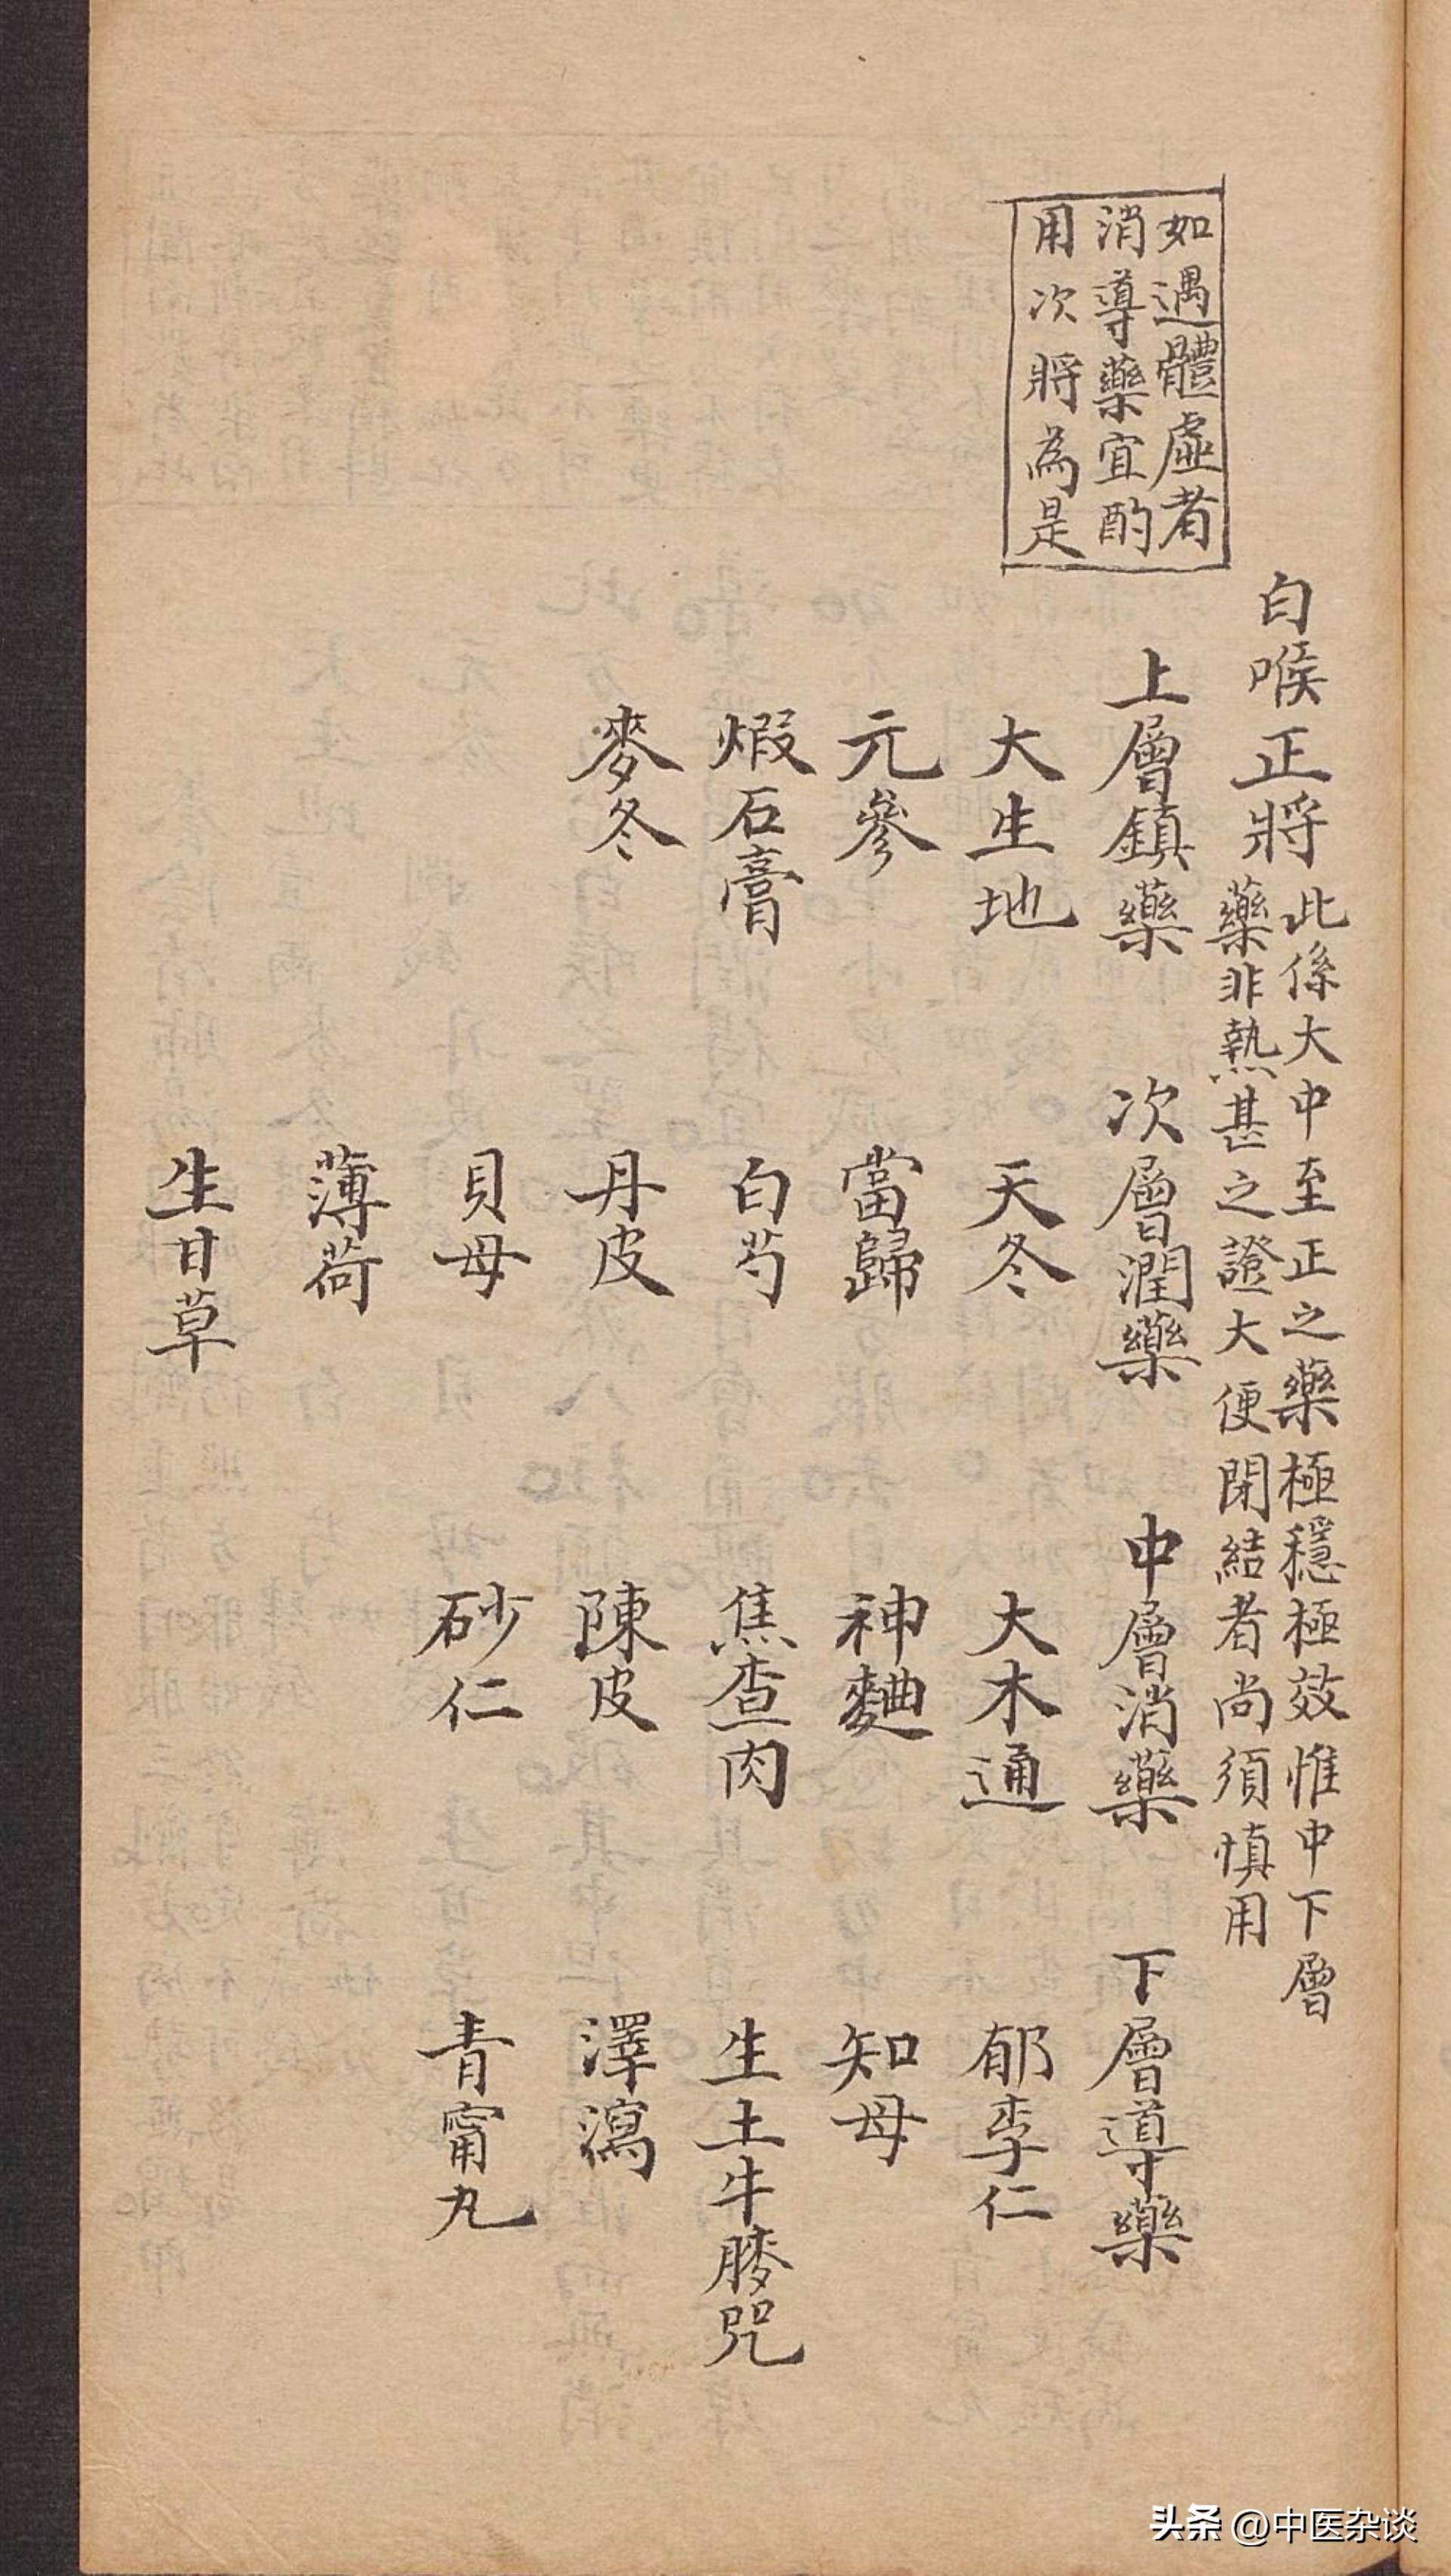 如遇體虛者
消導藥宜酌
用次將為是
白喉正將
此係大中至正之藥極穩極效惟中下層
藥非熱甚之證大便閉結者尚須慎用
上層鎮藥
次層潤藥
中層消藥
下層導藥
大生地
天冬
大木通
郁李仁
元參
當歸
神麯
知母
煆石膏
白芍
焦查肉
生土牛膝咒
麥冬
丹皮
陳皮
澤瀉
貝母
砂仁
青甯丸
薄荷
生甘草
头条 @中医杂谈